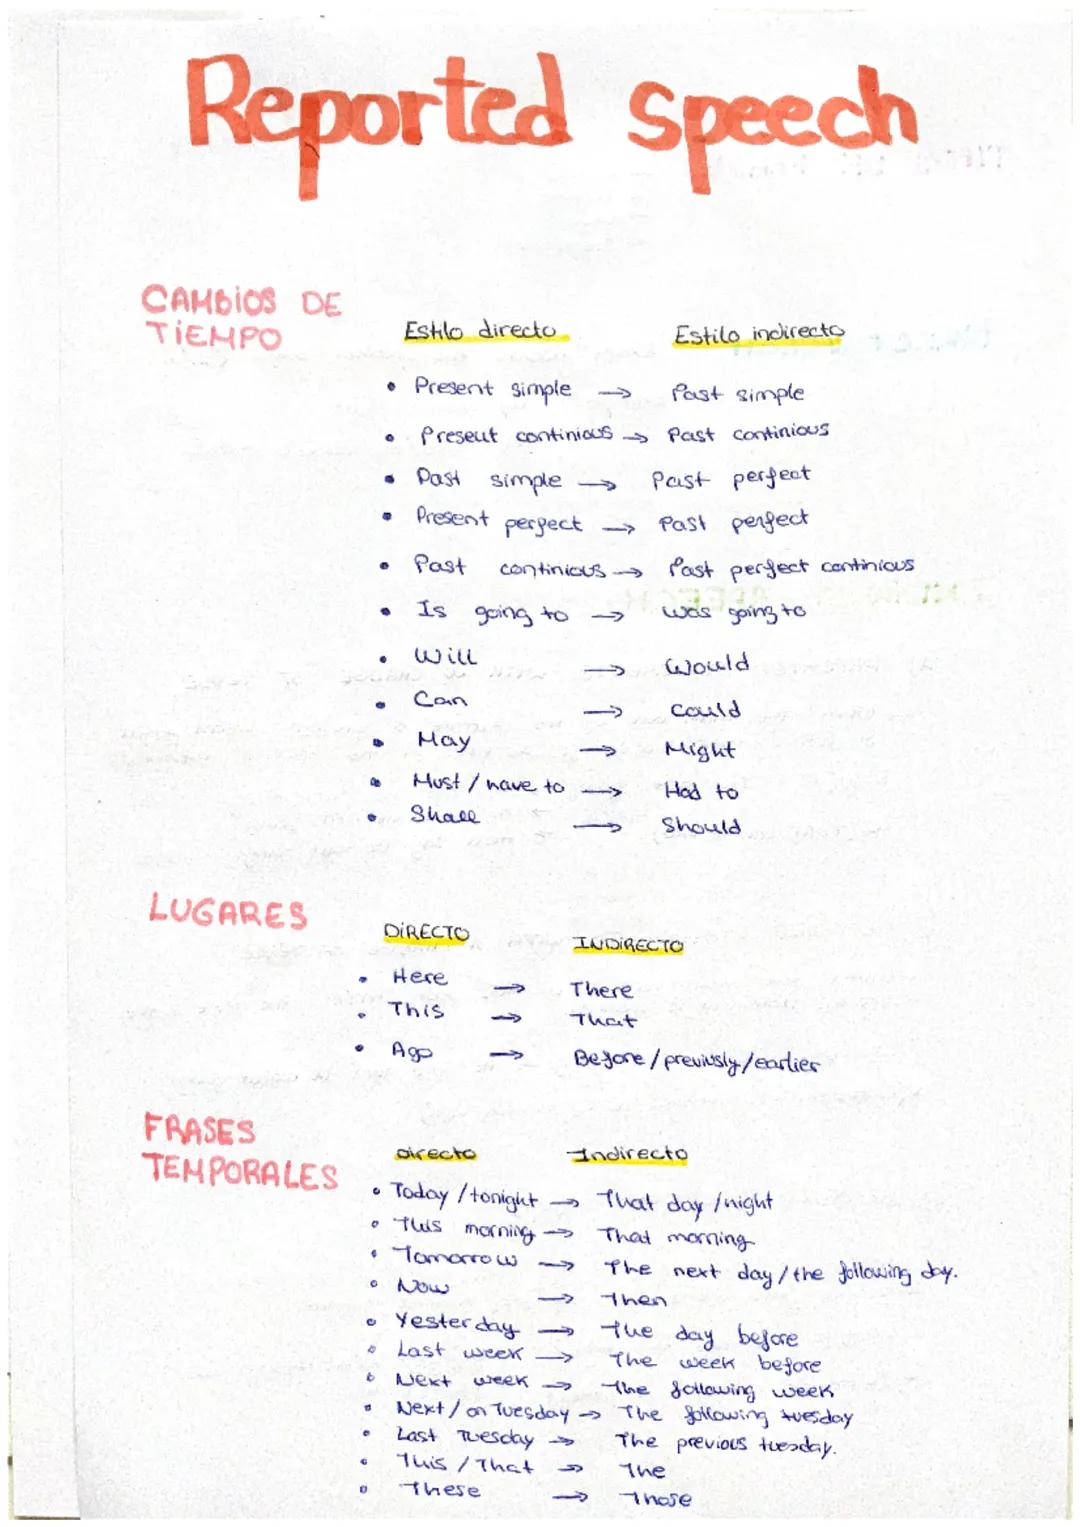 Reported speech
CAMBIOS DE
TIEMPO
Estilo directo Estilo indirecto
• Present simple → Past simple
• Present continious → Past continious
• Past simple → Past perfect
• Present perfect → Past perfect
• Past continious → Past perfect continious
• Is going to → was going to
• Will → Would
• Can → Could
• May → Might
• Must / have to → Had to
• Shall → Should
LUGARES
DIRECTO INDIRECTO
• Here → There
• This → That
• Ago → Before / previusly / earlier
FRASES
TEMPORALES
directo Indirecto
• Today / tonight → That day / night
• This morning → That morning
• Tomorrow → The next day / the following day.
• Now → Then
• Yesterday → The day before
• Last week → The week before
• Next week → The following week
• Next / on Tuesday → The following tuesday
• Last Tuesday → The previous tuesday.
• This / That → The
• These → Those